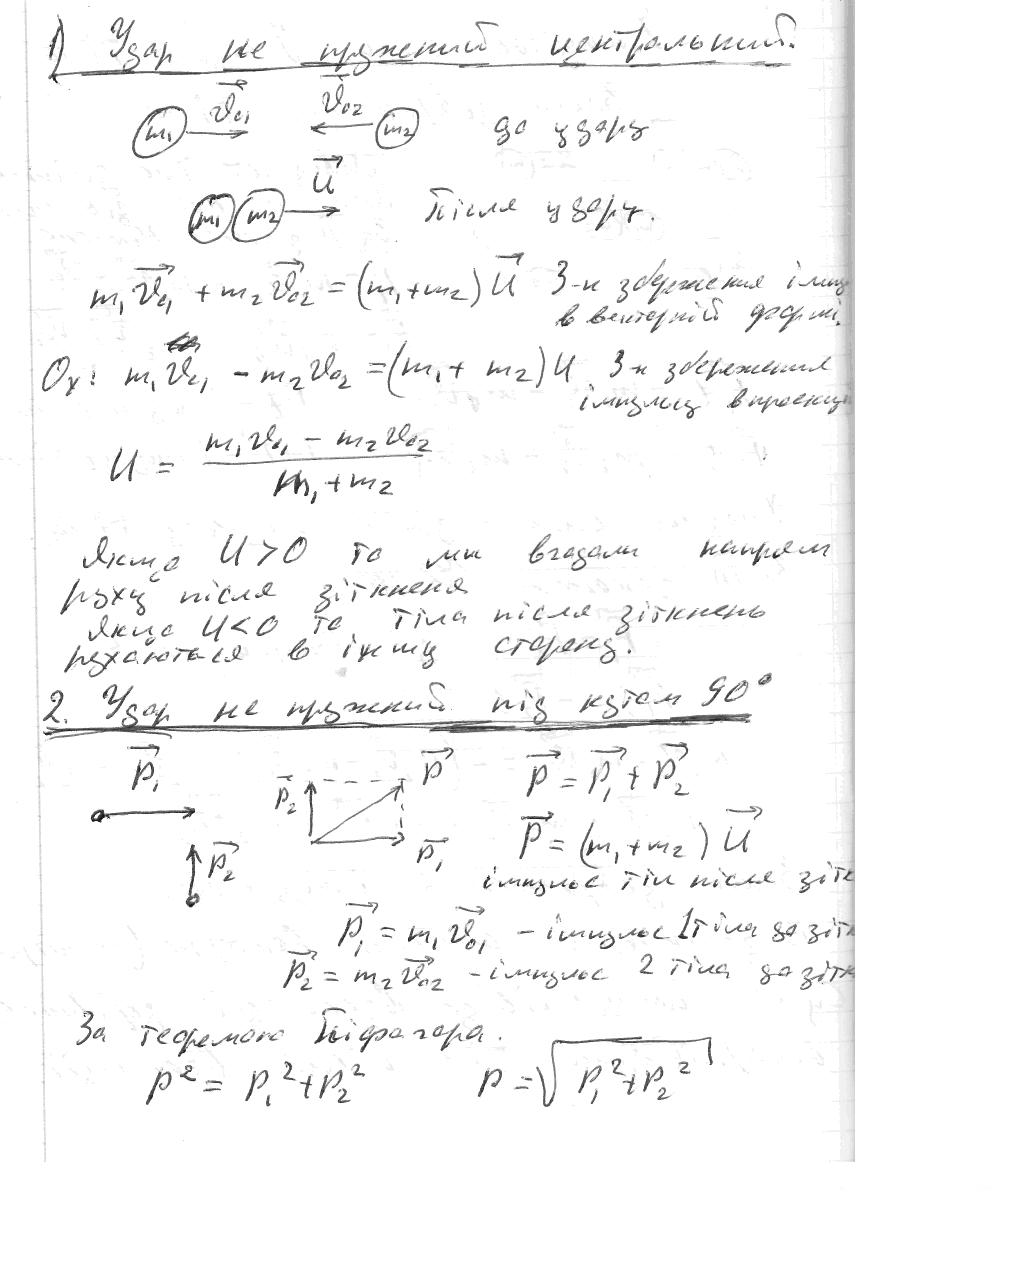 1) Удар не пружний центральний.
m₁ v⃗₀₁ v⃗₀₂ m₂ до удару
m₁ m₂ U⃗ Після удару.
m₁v⃗₀₁ + m₂v⃗₀₂ = (m₁+m₂)U⃗ З-н збереження імп
в векторній формі.
Ox: m₁v₀₁ - m₂v₀₂ = (m₁ + m₂)U З-н збереження
імпульсу в проекці
U = (m₁v₀₁ - m₂v₀₂)/(m₁+m₂)
Якщо U>0 то ми вгадали напрям
руху після зіткненя
Якщо U<0 то тіла після зіткнень
рухаються в іншу сторону.
2. Удар не пружний під кутом 90°
p⃗₁ p⃗₂ p⃗ p⃗ = p⃗₁ + p⃗₂
p⃗₂ p⃗₁ p⃗ = (m₁+m₂)U⃗
імпульс тіл після зітк
p⃗₁ = m₁v⃗₀₁ - імпульс 1 тіла до зітк
p⃗₂ = m₂v⃗₀₂ - імпульс 2 тіла до зітк
За теоремою Піфагора.
p² = p₁² + p₂² p = √(p₁² + p₂²)